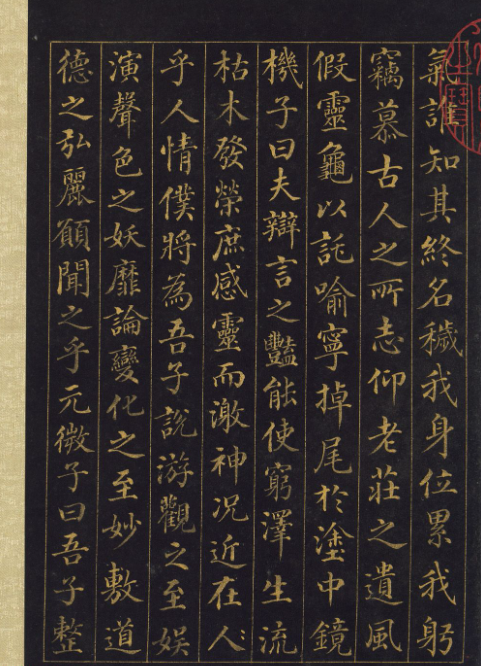 氣誰知其終名穢我身位累我躬
竊慕古人之所志仰老莊之遺風
假靈龜以託喻寧掉尾於塗中鏡
機子曰夫辯言之豔能使窮澤生流
枯木發榮庶感靈而激神況近在人
乎人情僕將為吾子說游觀之至娛
演聲色之妖靡論變化之至妙敷道
德之弘麗願聞之乎元微子曰吾子整